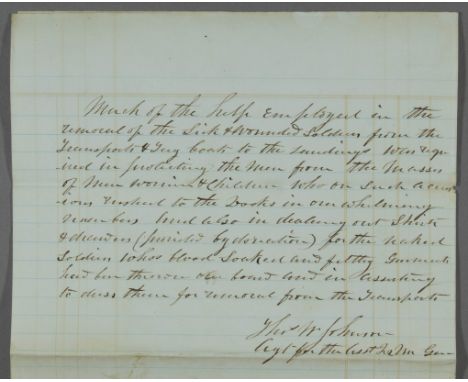 Much of the help employed in the
removal of the Sick & Wounded Soldiers from the
Transports & Tug boats to the landings was requ
ired in protecting the Men from the Masses
of Men women & Children who on such occas
ions rushed to the Docks in overwhelming
numbers And also in dealing out Shirts
& drawers (furnished by donation) for the naked
Soldiers whos blood Soaked and filthy Garments
had ben thrown over board and in assisting
to dress them for removal from the Transports
Thos W Johnson
Agt for the Asst Qr Mr Gen